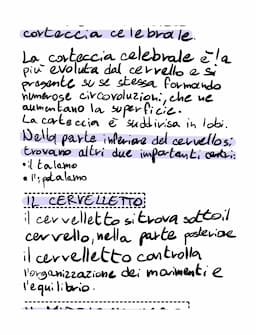 corteccia celebrale.
La corteccia celebrale è la
più evoluta del cervello e si
presente su se stessa formando
numerose circovoluzioni, che ne
aumentano la superficie.
La corteccia è suddivisa in lobi.
Nella parte inferiore del cervello si
trovano altri due importanti centri:
• il talamo
• l'ipotalamo
IL CERVELLETTO
il cervelletto si trova sotto il
cervello, nella parte posteriore
il cervelletto controlla
l'organizzazione dei movimenti e
l'equilibrio.